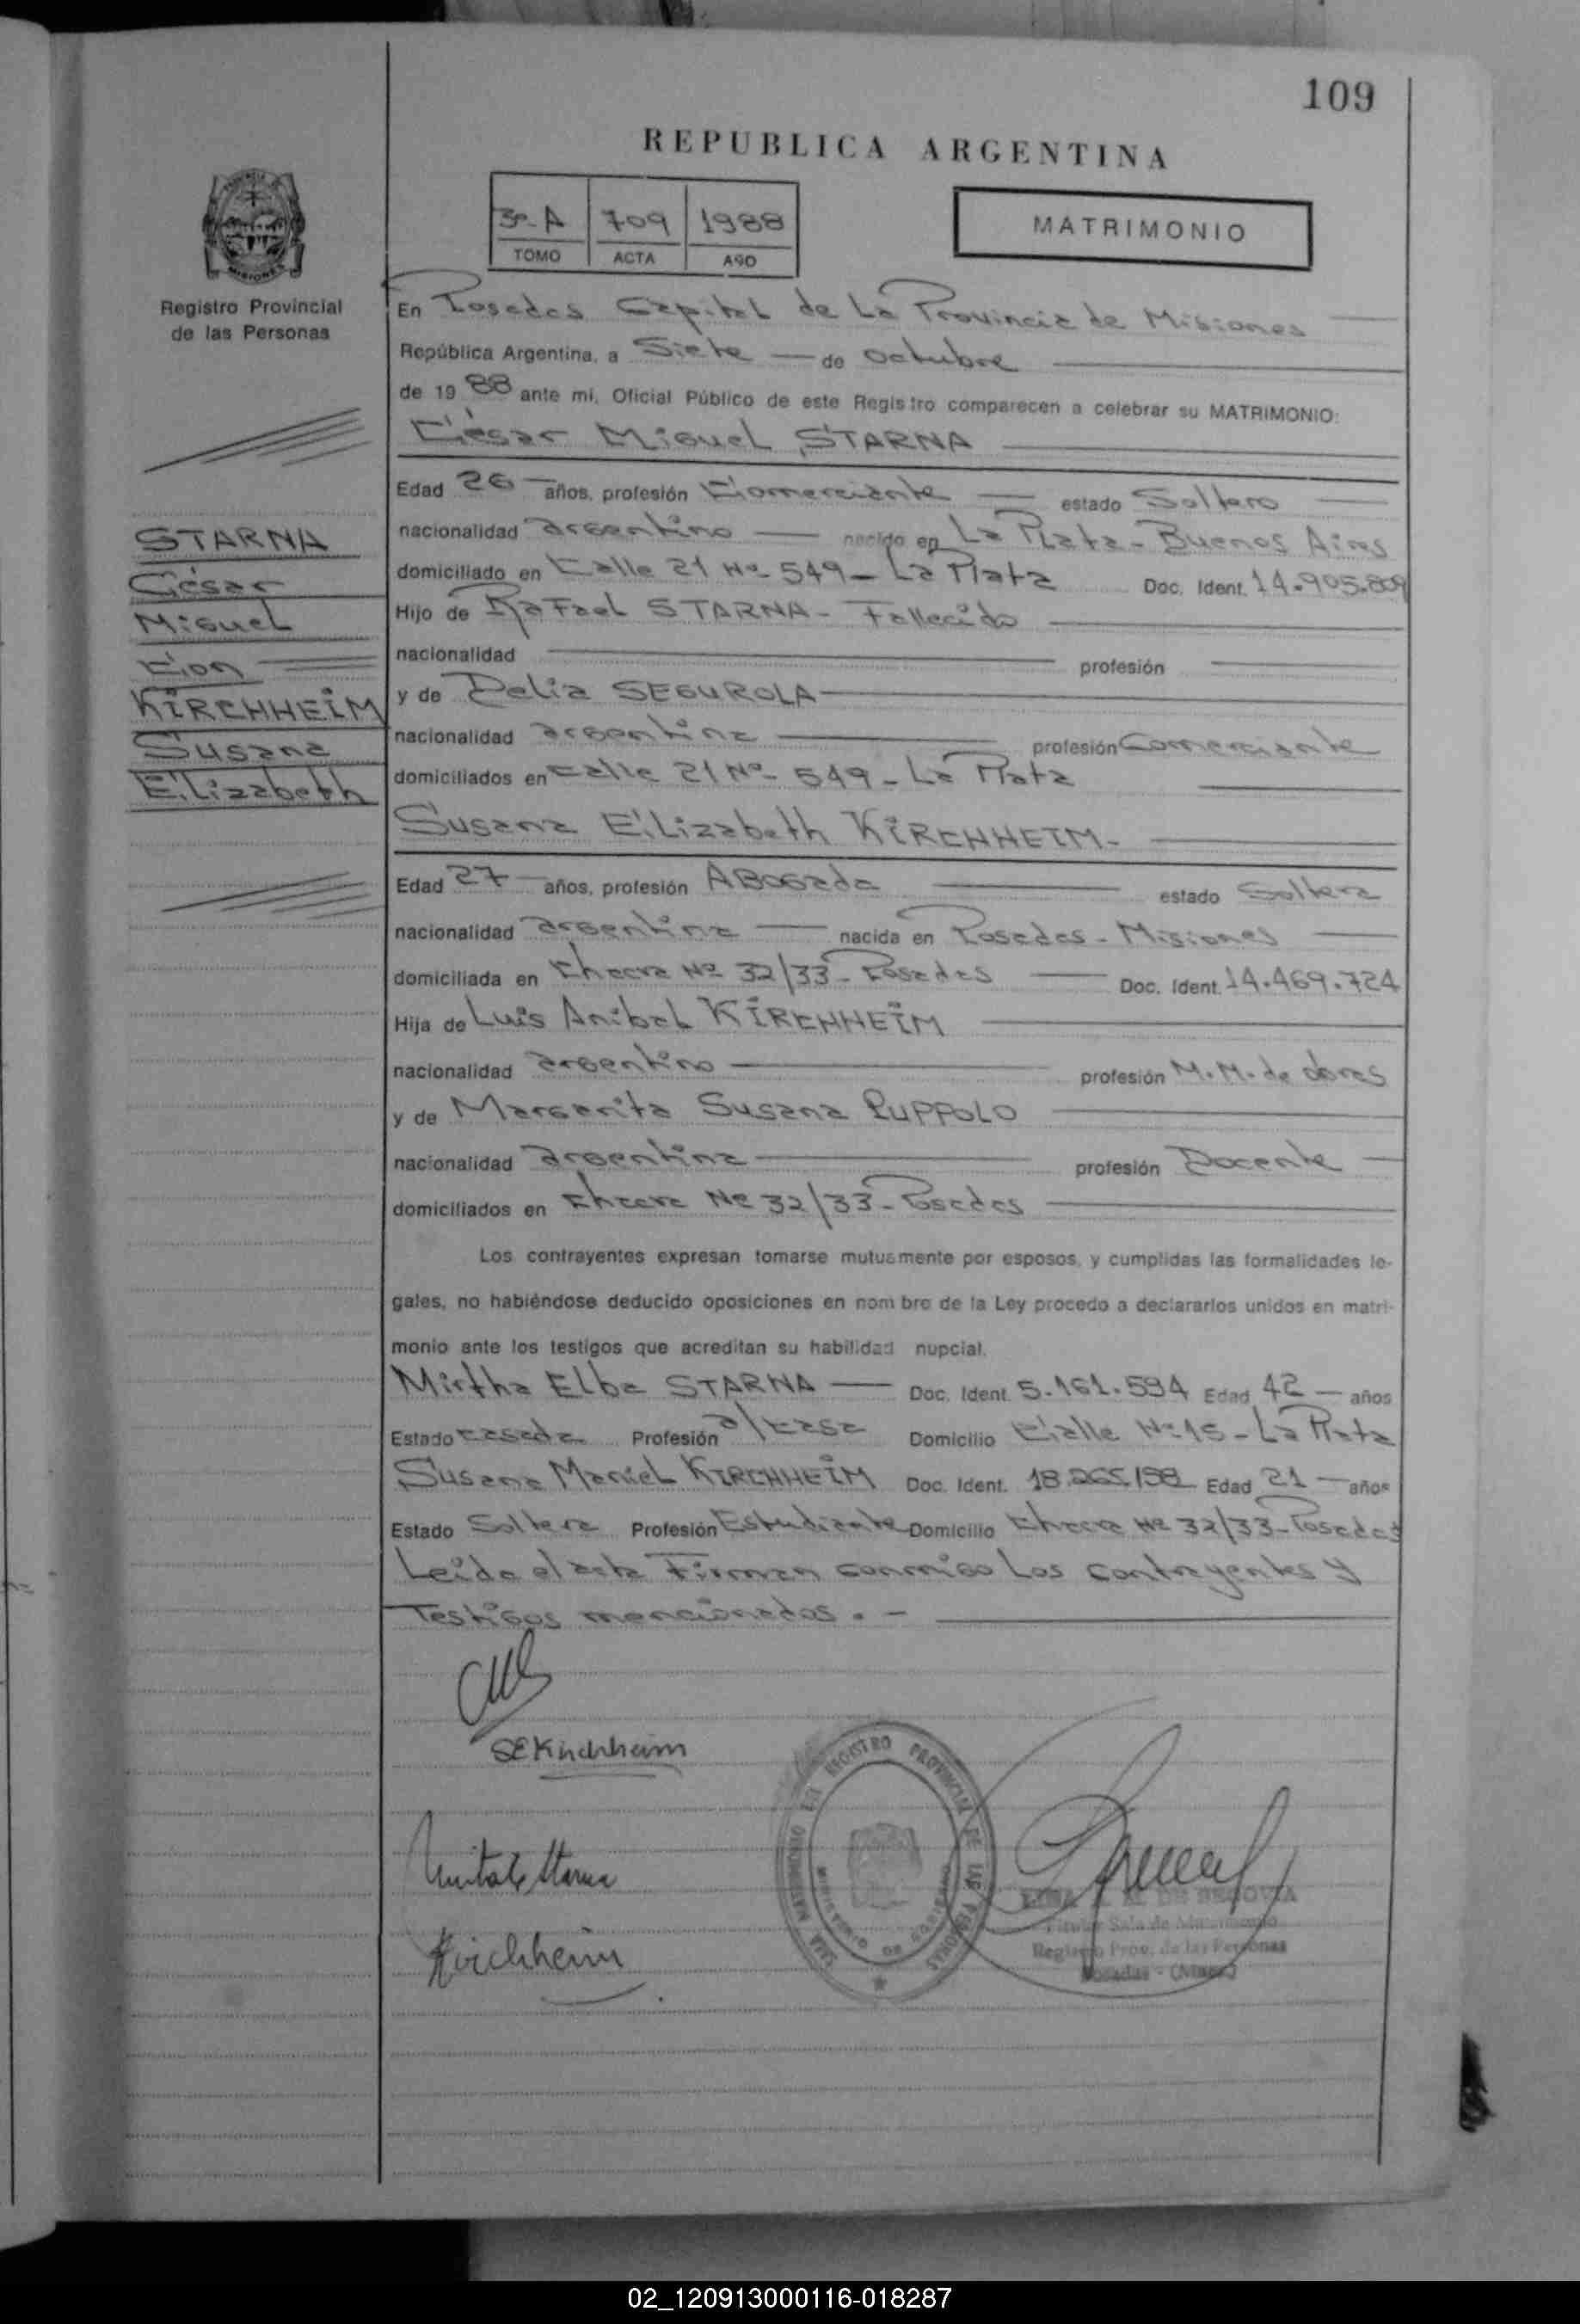 109
REPUBLICA ARGENTINA
3º A 709 1988
TOMO ACTA AÑO
MATRIMONIO
Registro Provincial
de las Personas
En Posadas Capital de La Provincia de Misiones
República Argentina, a Siete de octubre
de 1988 ante mi, Oficial Público de este Registro comparecen a celebrar su MATRIMONIO:
César Miguel STARNA
Edad 26 años, profesión Comerciante estado Soltero
nacionalidad argentino nacido en La Plata - Buenos Aires
domiciliado en Calle 21 Nº 549 - La Plata Doc. Ident. 14.905.809
Hijo de Rafael STARNA - Fallecido
nacionalidad profesión
y de Delia SEGUROLA
nacionalidad argentina profesión Comerciante
domiciliados en calle 21 Nº 549 - La Plata
STARNA
César
Miguel
Con
KIRCHHEIM
Susana
Elizabeth
Susana Elizabeth KIRCHHEIM -
Edad 27 años, profesión ABogada estado Soltera
nacionalidad argentina nacida en Posadas - Misiones
domiciliada en Chacra Nº 32/33 - Posadas Doc. Ident. 14.469.724
Hija de Luis Anibal KIRCHHEIM
nacionalidad argentino profesión M.M. de obras
y de Margarita Susana PUPPOLO
nacionalidad argentina profesión Docente
domiciliados en Chacra Nº 32/33 - Posadas
Los contrayentes expresan tomarse mutuamente por esposos, y cumplidas las formalidades le-
gales, no habiéndose deducido oposiciones en nombre de la Ley procedo a declararlos unidos en matri-
monio ante los testigos que acreditan su habilidad nupcial.
Mirtha Elba STARNA Doc. Ident. 5.161.594 Edad 42 años
Estado casada Profesión a/casa Domicilio Calle Nº 15 - La Plata
Susana Mariel KIRCHHEIM Doc. Ident. 18.265.158 Edad 21 años
Estado Soltera Profesión Estudiante Domicilio Chacra Nº 32/33 - Posadas
Leida el acta Firman conmigo Los contrayentes y
Testigos mencionados. -
SEKirchheim
Kirchheim
REGISTRO PROVINCIAL DE LAS PERSONAS
DE SEGOVIA
Titular Sala de Matrimonio
Registro Prov. de las Personas
Posadas - (Mnes.)
02_120913000116-018287